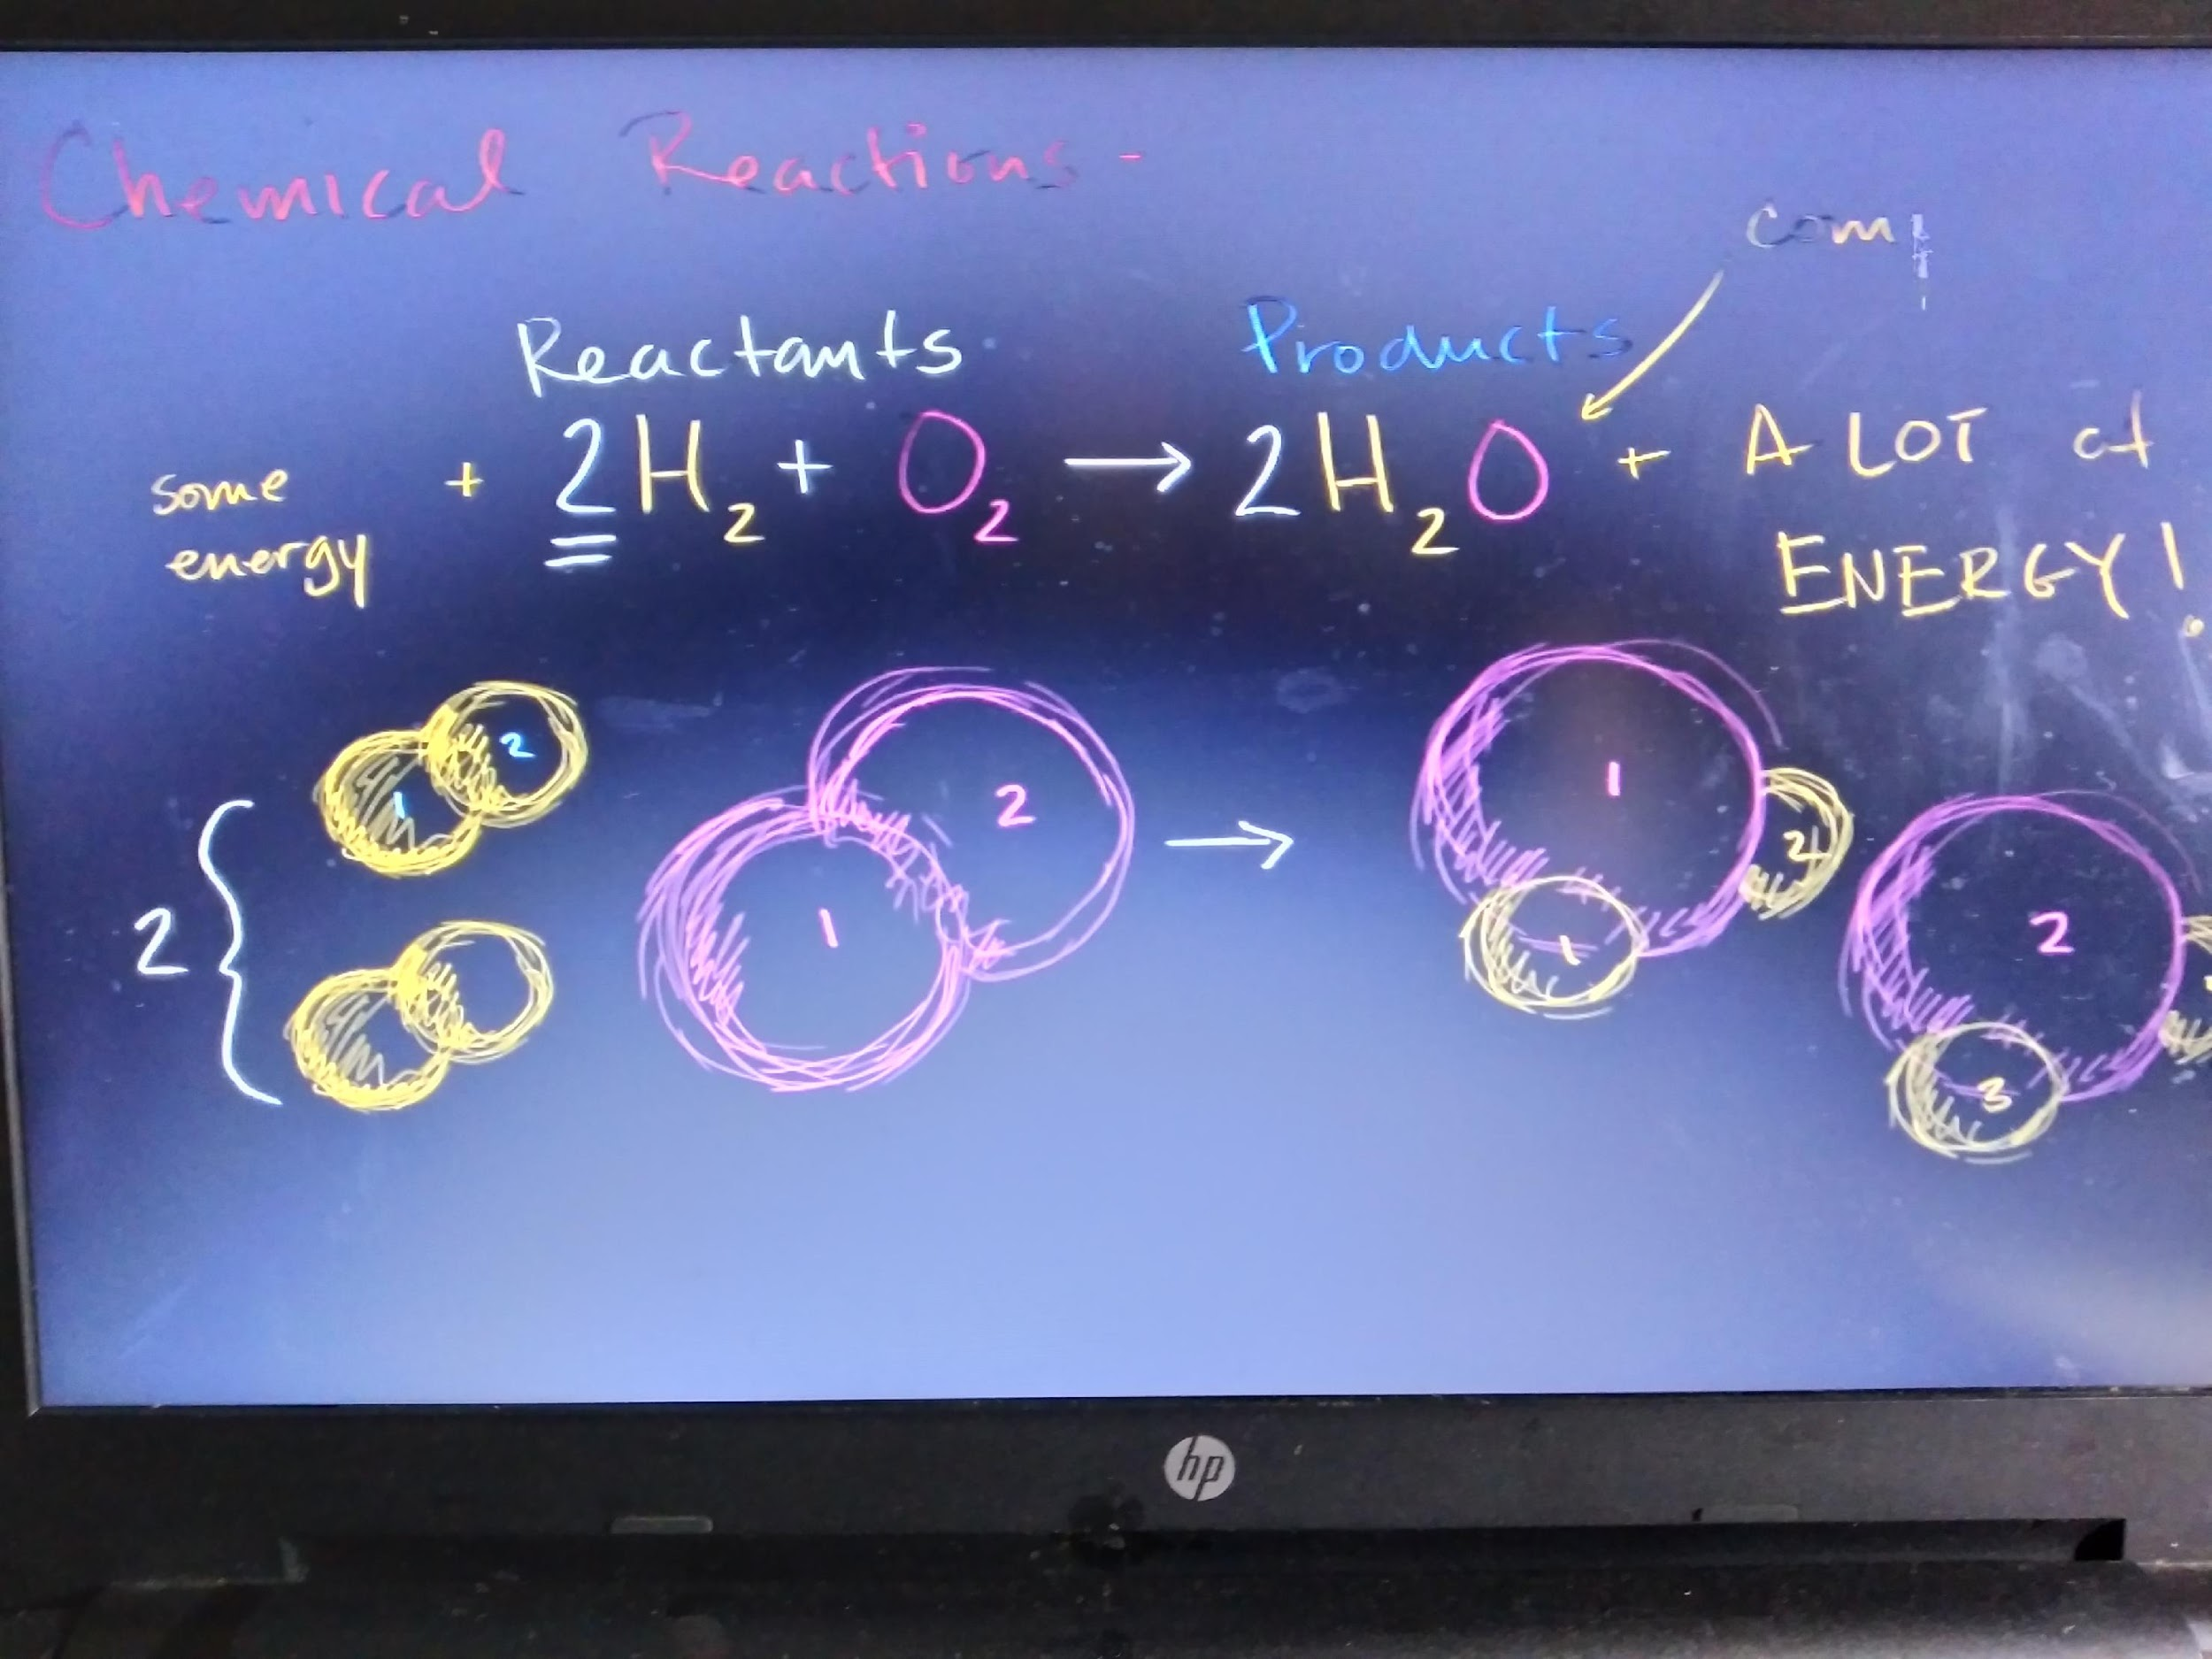 Chemical Reactions -
comp
Reactants Products
some energy + 2H₂ + O₂ → 2H₂O + A LOT of ENERGY!
2
1
2
→
1
2
2 {
1
1
2
2
3
hp